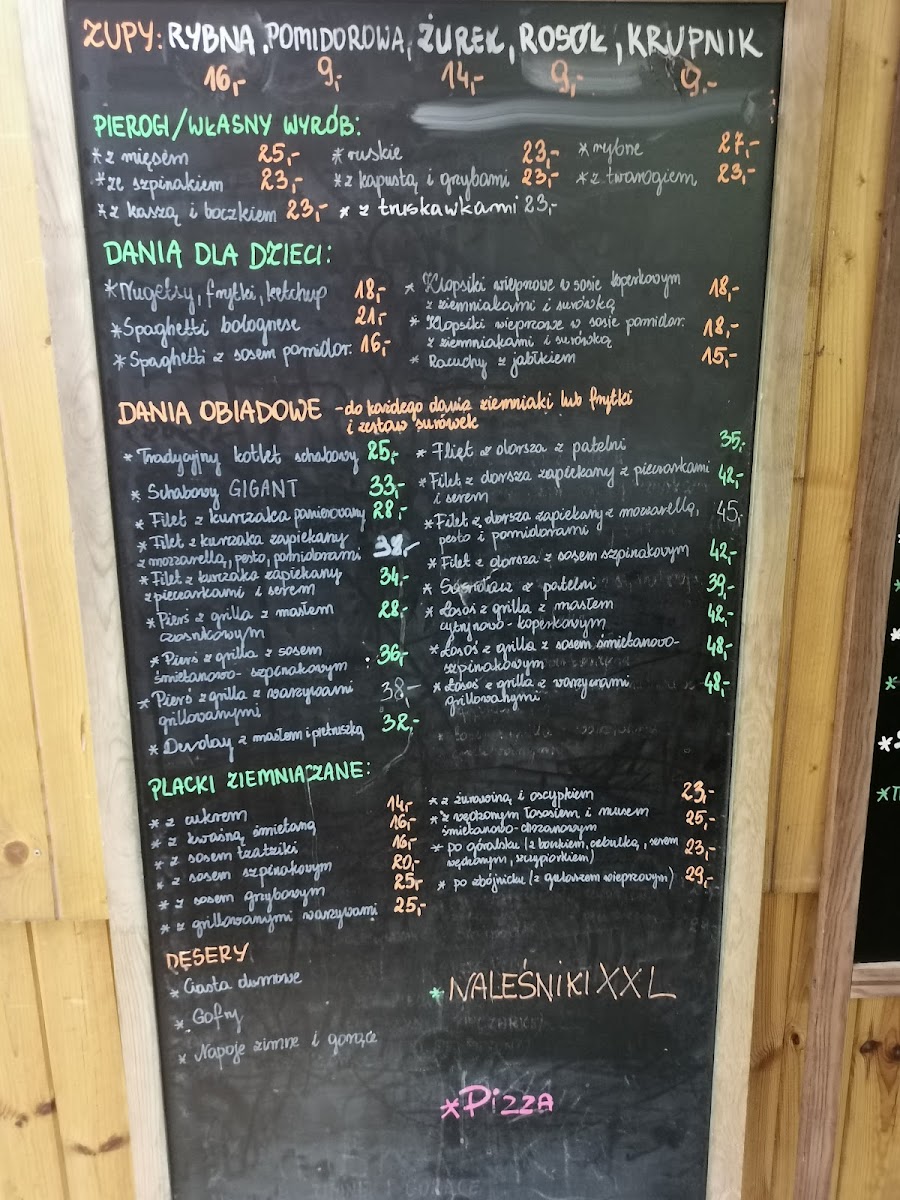 ZUPY: RYBNA, POMIDOROWA, ŻUREK, ROSÓŁ, KRUPNIK
16,- 9,- 14,- 9,- 9.-
PIEROGI/WŁASNY WYRÓB:
* z mięsem 25,- * ruskie 23,- * rybne 27,-
* ze szpinakiem 23,- * z kapustą i grzybami 23,- * z twarogiem 23,-
* z kaszą i boczkiem 23,- * z truskawkami 23,-
DANIA DLA DZIECI:
* Nugetsy, frytki, ketchup 18,-
* Spaghetti bolognese 21,-
* Spaghetti z sosem pomidor. 16,-
* Klopsiki wieprzowe w sosie koperkowym
z ziemniakami i surówką 18,-
* Klopsiki wieprzowe w sosie pomidor.
z ziemniakami i surówką 18,-
* Racuchy z jabłkiem 15,-
DANIA OBIADOWE - do każdego dania ziemniaki lub frytki
i zestaw surówek
* Tradycyjny kotlet schabowy 25,-
* Schabowy GIGANT 33,-
* Filet z kurczaka panierowany 28,-
* Filet z kurczaka zapiekany
z mozzarellą, pesto, pomidorami 38,-
* Filet z kurczaka zapiekany
z pieczarkami i serem 34,-
* Pierś z grilla z masłem
czosnkowym 28,-
* Pierś z grilla z sosem
śmietanowo-szpinakowym 36,-
* Pierś z grilla z warzywami
grillowanymi 38,-
* Devolay z masłem i pietruszką 32,-
* Filet z dorsza z patelni 35,-
* Filet z dorsza zapiekany z pieczarkami
i serem 42,-
* Filet z dorsza zapiekany z mozzarellą,
pesto i pomidorami 45,-
* Filet z dorsza z sosem szpinakowym 42,-
* z patelni 39,-
* Łosoś z grilla z masłem
cytrynowo-koperkowym 42,-
* Łosoś z grilla z sosem śmietanowo-
szpinakowym 48,-
* Łosoś z grilla z warzywami
grillowanymi 48,-
PLACKI ZIEMNIACZANE:
* z cukrem 14,-
* z kwaśną śmietaną 16,-
* z sosem tzatziki 16,-
* z sosem szpinakowym 20,-
* z sosem grzybowym 25,-
* z grillowanymi warzywami 25,-
* z żurawiną i oscypkiem 23,-
* z wędzonym łososiem i musem
śmietanowo-chrzanowym 25,-
* po góralsku (z boczkiem, cebulką, serem
wędzonym, szczypiorkiem) 23,-
* po zbójnicku (z gulaszem wieprzowym) 29,-
DESERY
* Ciasta domowe
* Gofry
* Napoje zimne i gorące
* NALEŚNIKI XXL
* Pizza